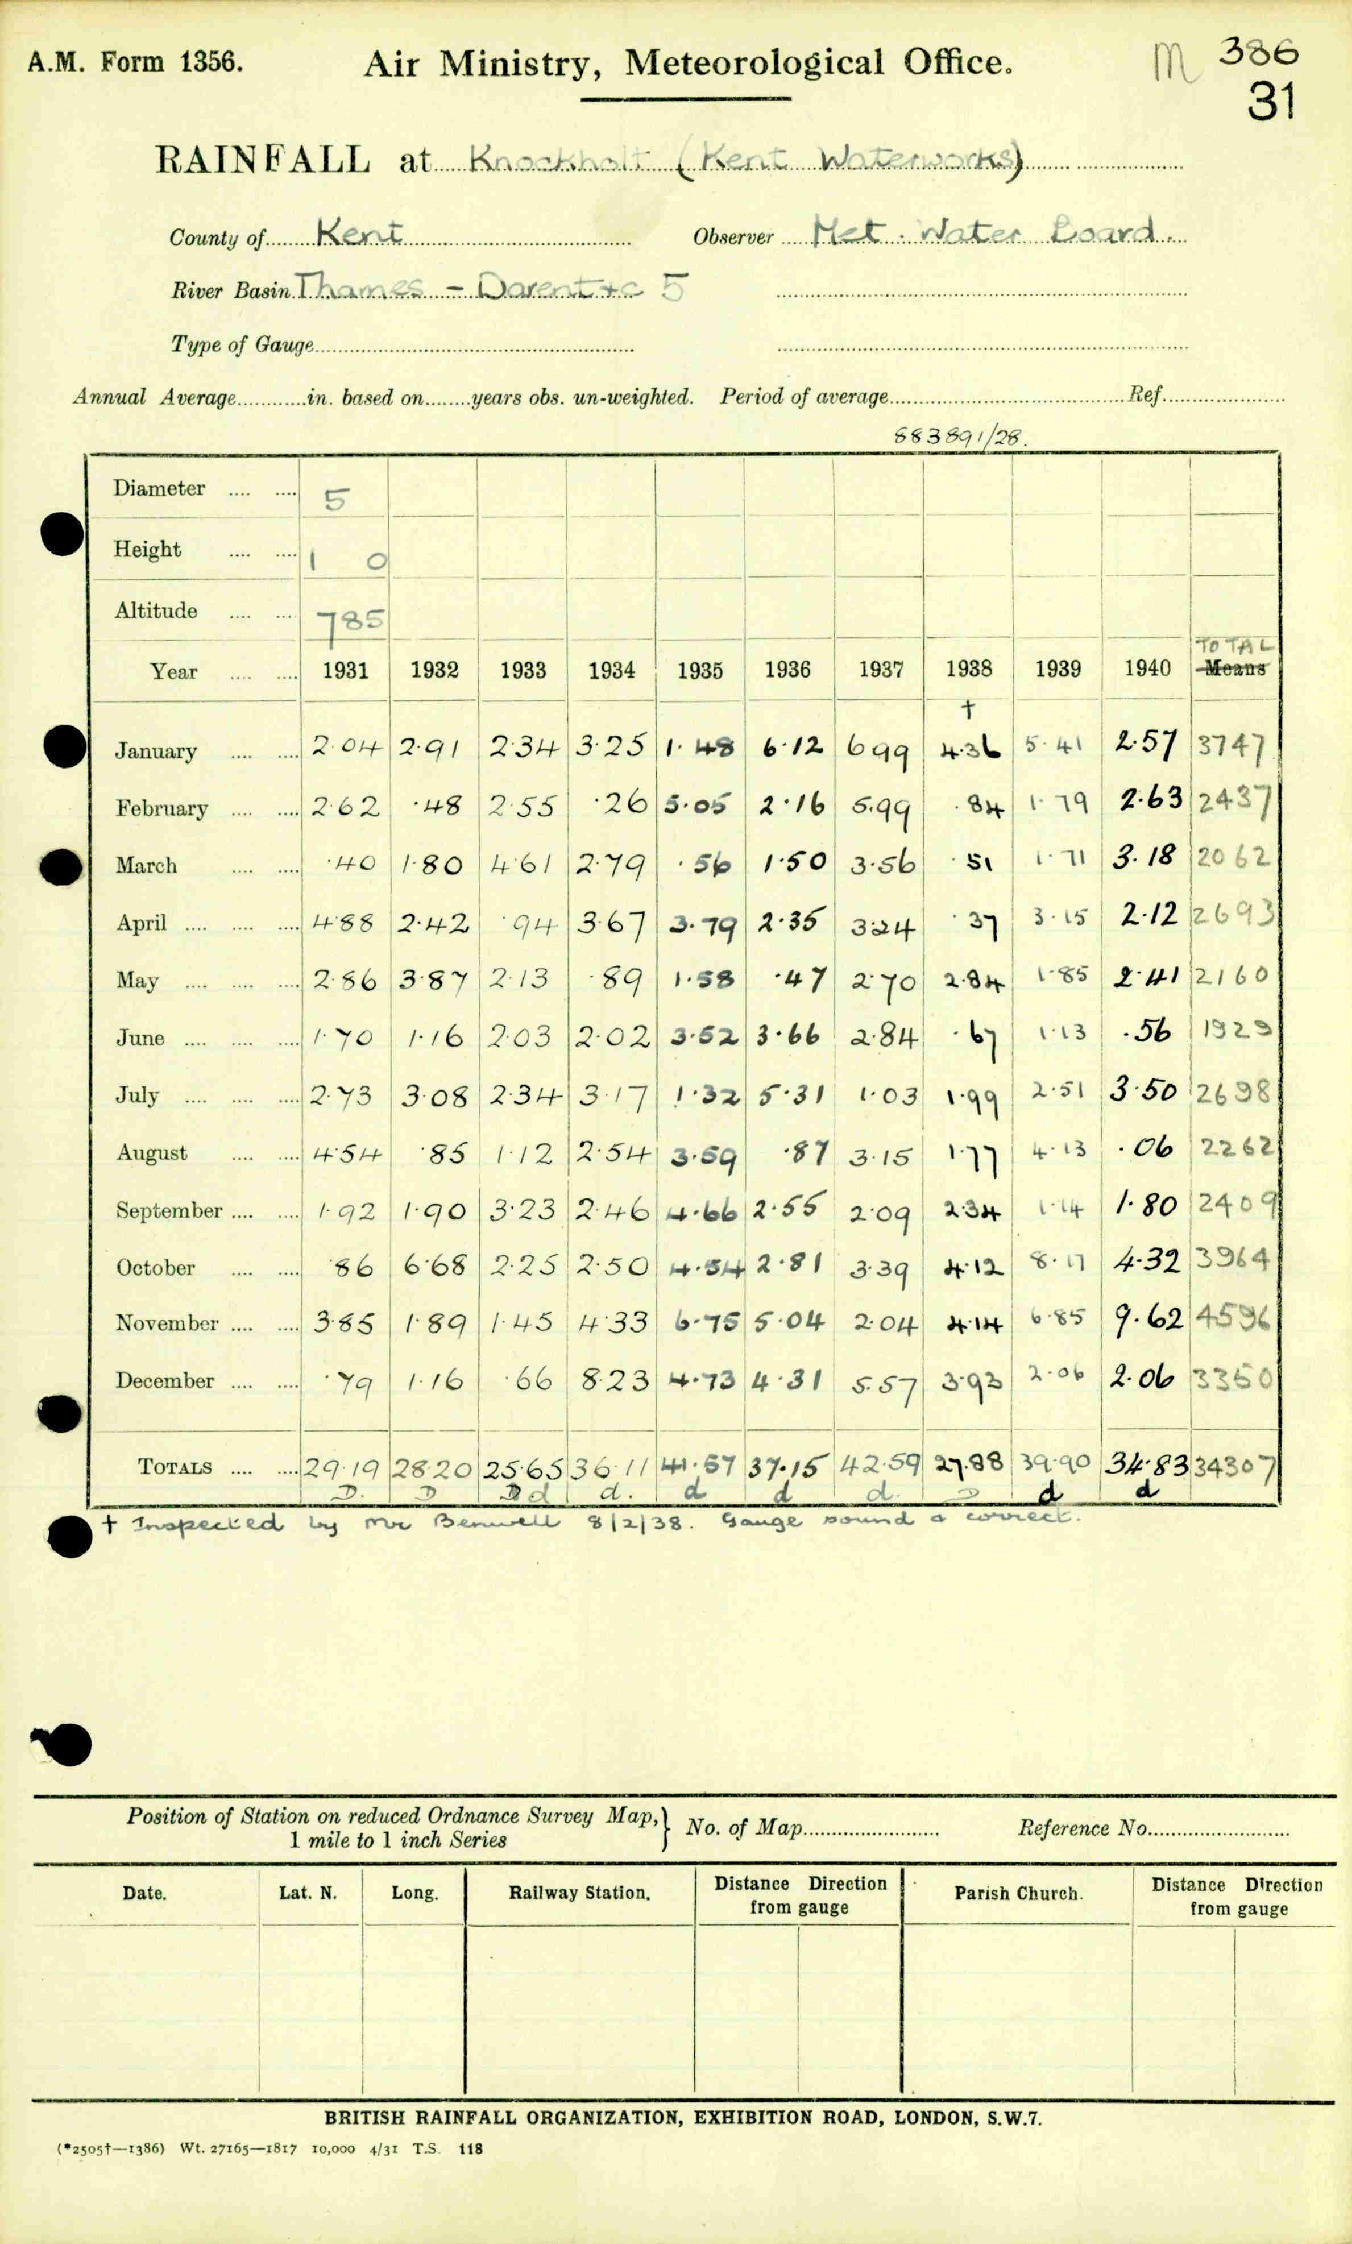 A.M. Form 1356. Air Ministry, Meteorological Office. M 386
31
RAINFALL at Knockholt (Kent Waterworks)
County of Kent Observer Met. Water Board.
River Basin Thames - Darent &c 5
Type of Gauge
Annual Average in. based on years obs. un-weighted. Period of average Ref.
883891/28.
Diameter 5
Height 1 0
Altitude 785
TOTAL
Year 1931 1932 1933 1934 1935 1936 1937 1938 1939 1940 Means
†
January 2.04 2.91 2.34 3.25 1.48 6.12 6.99 4.36 5.41 2.57 3747
February 2.62 .48 2.55 .26 5.05 2.16 5.99 .84 1.79 2.63 2437
March .40 1.80 4.61 2.79 .56 1.50 3.56 .51 1.71 3.18 2062
April 4.88 2.42 .94 3.67 3.79 2.35 3.24 .37 3.15 2.12 2693
May 2.86 3.87 2.13 .89 1.58 .47 2.70 2.84 1.85 2.41 2160
June 1.70 1.16 2.03 2.02 3.52 3.66 2.84 .67 1.13 .56 1929
July 2.73 3.08 2.34 3.17 1.32 5.31 1.03 1.99 2.51 3.50 2698
August 4.54 .85 1.12 2.54 3.59 .87 3.15 1.77 4.13 .06 2262
September 1.92 1.90 3.23 2.46 4.66 2.55 2.09 2.34 1.14 1.80 2409
October .86 6.68 2.25 2.50 4.54 2.81 3.39 4.12 8.17 4.32 3964
November 3.85 1.89 1.45 4.33 6.75 5.04 2.04 4.14 6.85 9.62 4596
December .79 1.16 .66 8.23 4.73 4.31 5.57 3.93 2.06 2.06 3350
TOTALS 29.19 28.20 25.65 36.11 41.57 37.15 42.59 27.88 39.90 34.83 34307
D. D D d d. d d d. D d d
† Inspected by Mr Benwell 8/2/38. Gauge sound & correct.
Position of Station on reduced Ordnance Survey Map,
1 mile to 1 inch Series } No. of Map Reference No.
Date. Lat. N. Long. Railway Station. Distance Direction from gauge Parish Church. Distance Direction from gauge
BRITISH RAINFALL ORGANIZATION, EXHIBITION ROAD, LONDON, S.W.7.
(*2505†—1386) Wt. 27165—1817 10,000 4/31 T.S. 118